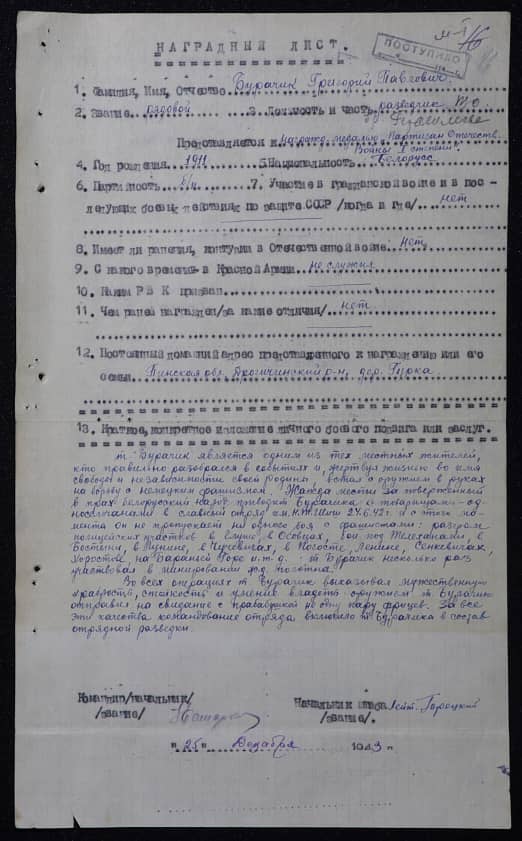 НАГРАДНЫЙ ЛИСТ.
ПОСТУПИЛО
1. Фамилия, Имя, Отчество Бурачик Григорий Павлович
2. Звание рядовой 3. Должность и часть разведчик
Представляется к награжд. медалью „Партизан Отечеств.
Войны II степени"
4. Год рождения 1911 5. Национальность Белорусс
6. Партийность б/п 7. Участие в гражданской войне и в пос-
ледующих боевых действиях по защите СССР /когда и где/ нет
8. Имеет ли ранения, контузии в Отечественной войне нет
9. С какого времени в Красной Армии не служил
10. Каким Р В К призван
11. Чем ранее награжден/за какие отличия/ нет
12. Постоянный домашний адрес представленного к награждению или его
семьи Пинская обл. Дрогичинский р-н, дер. Гурка
13. Краткое, конкретное изложение личного боевого подвига или заслуг.
т. Бурачик является одним из тех местных жителей,
кто правильно разобрался в событиях и, жертвуя жизнью во имя
свободы и независимости своей родины, встал с оружием в руках
на борьбу с немецким фашизмом. Жажда мести за поверженный
в прах белорусский народ приводят Бурачика с товарищами-од-
носельчанами в славный отряд 24.6.42г. и с этого мо-
мента он не пропускает ни одного боя с фашистами: разгром
полицейских участков в Святой Воле, бои под Телеханами, в
Бостыни, в Лунине, в Чучевичах, в Погосте, Ленине, Сенкевичах,
Хоростове, на Бараньей Горе и т.д. т. Бурачик несколько раз
участвовал в минировании ж.д. полотна.
Во всех операциях т. Бурачик выказывал мужественную
храбрость, стойкость и умение владеть оружием. т. Бурачик
отправил на свидание с прабабушкой не одну пару фрицев. За все
эти качества командование отряда включило т. Бурачика в состав
отрядной разведки.
Командир/начальник/
/звание/
Начальник штаба Лейт. Городкий
/звание/.
"25" Декабря 1943 г.